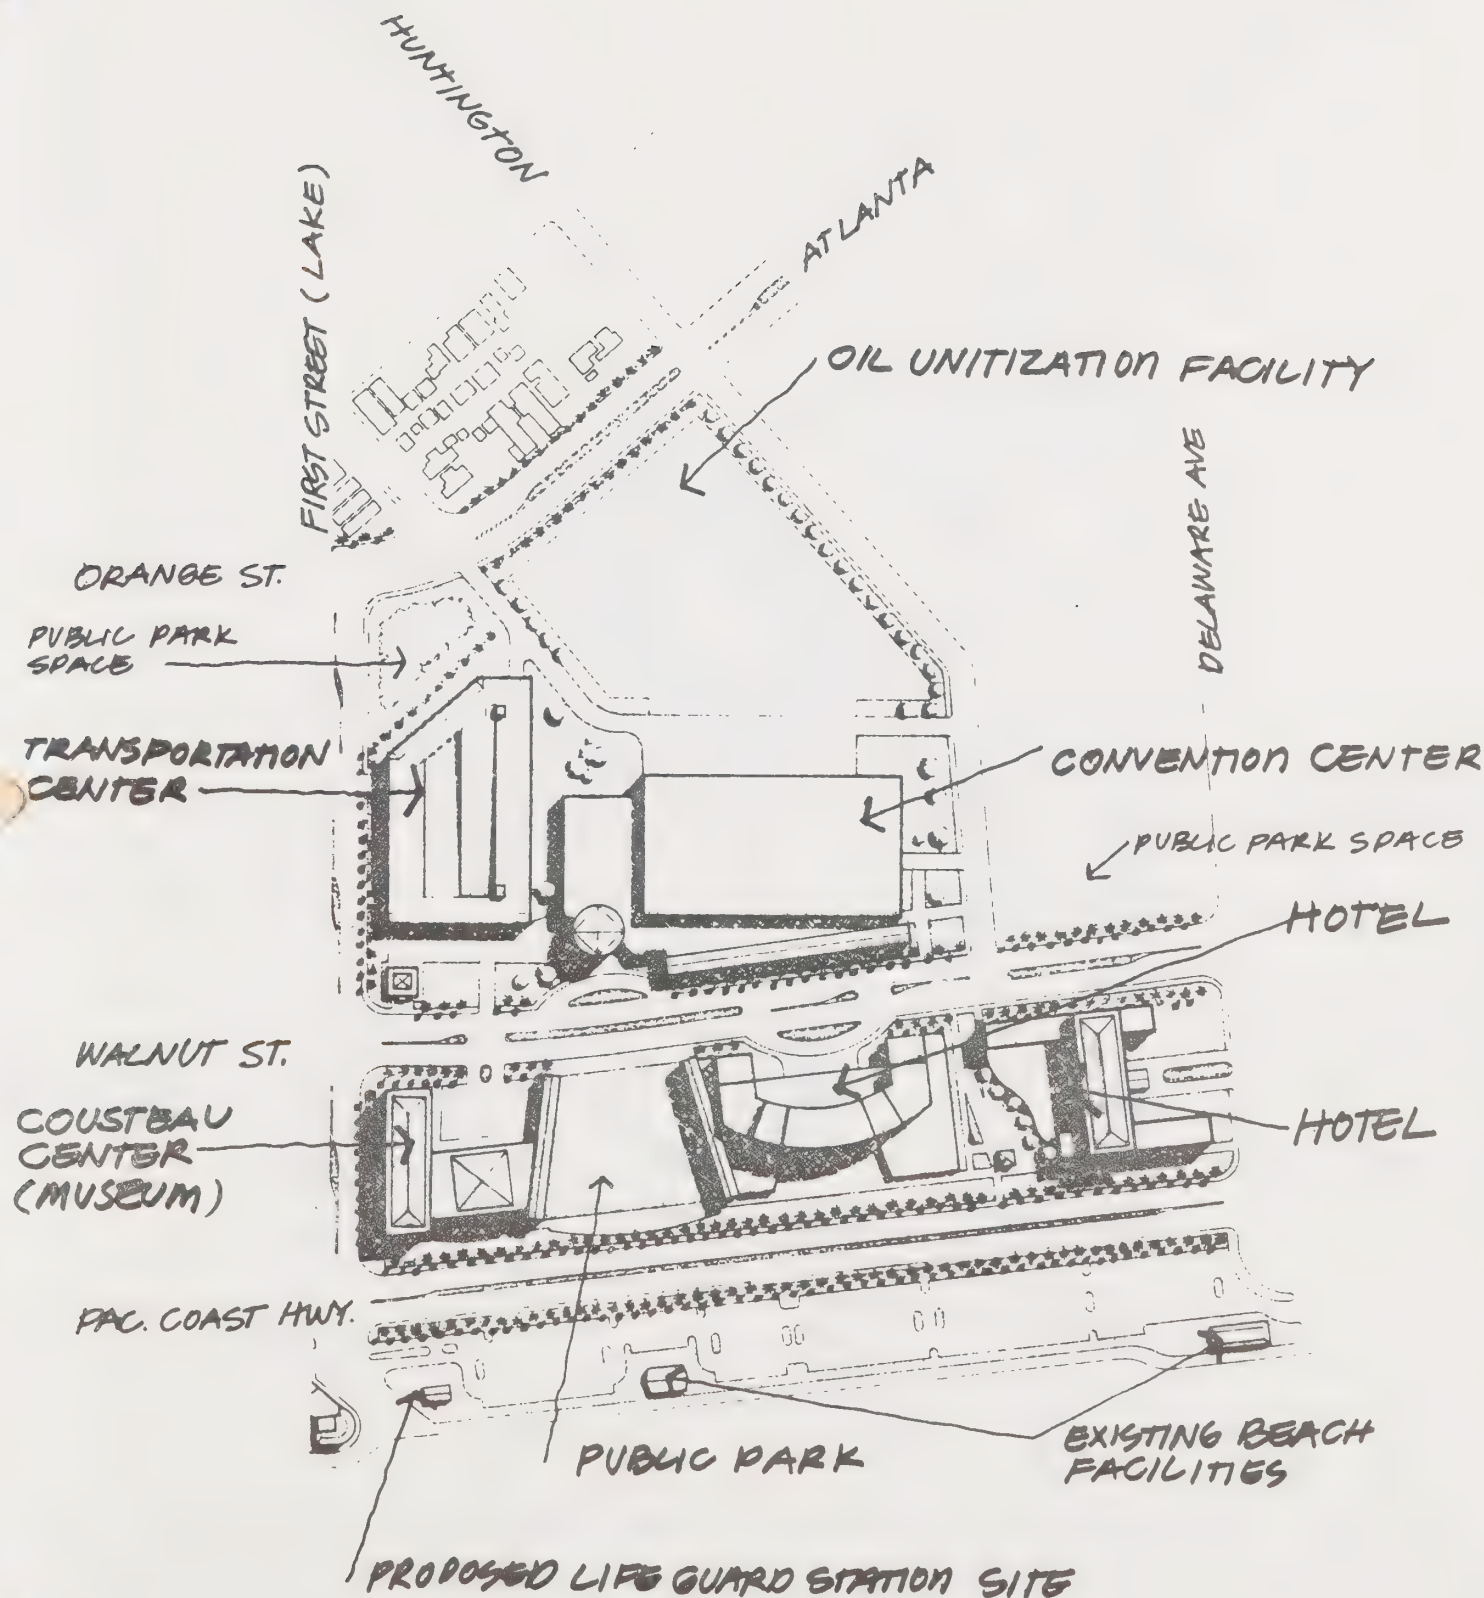 HUNTINGTON
ATLANTA
FIRST STREET (LAKE)
OIL UNITIZATION FACILITY
DELAWARE AVE
ORANGE ST.
PUBLIC PARK
SPACE
TRANSPORTATION
CENTER
CONVENTION CENTER
PUBLIC PARK SPACE
HOTEL
WALNUT ST.
COUSTEAU
CENTER
(MUSEUM)
HOTEL
PAC. COAST HWY.
PUBLIC PARK
EXISTING BEACH
FACILITIES
PROPOSED LIFE GUARD STATION SITE